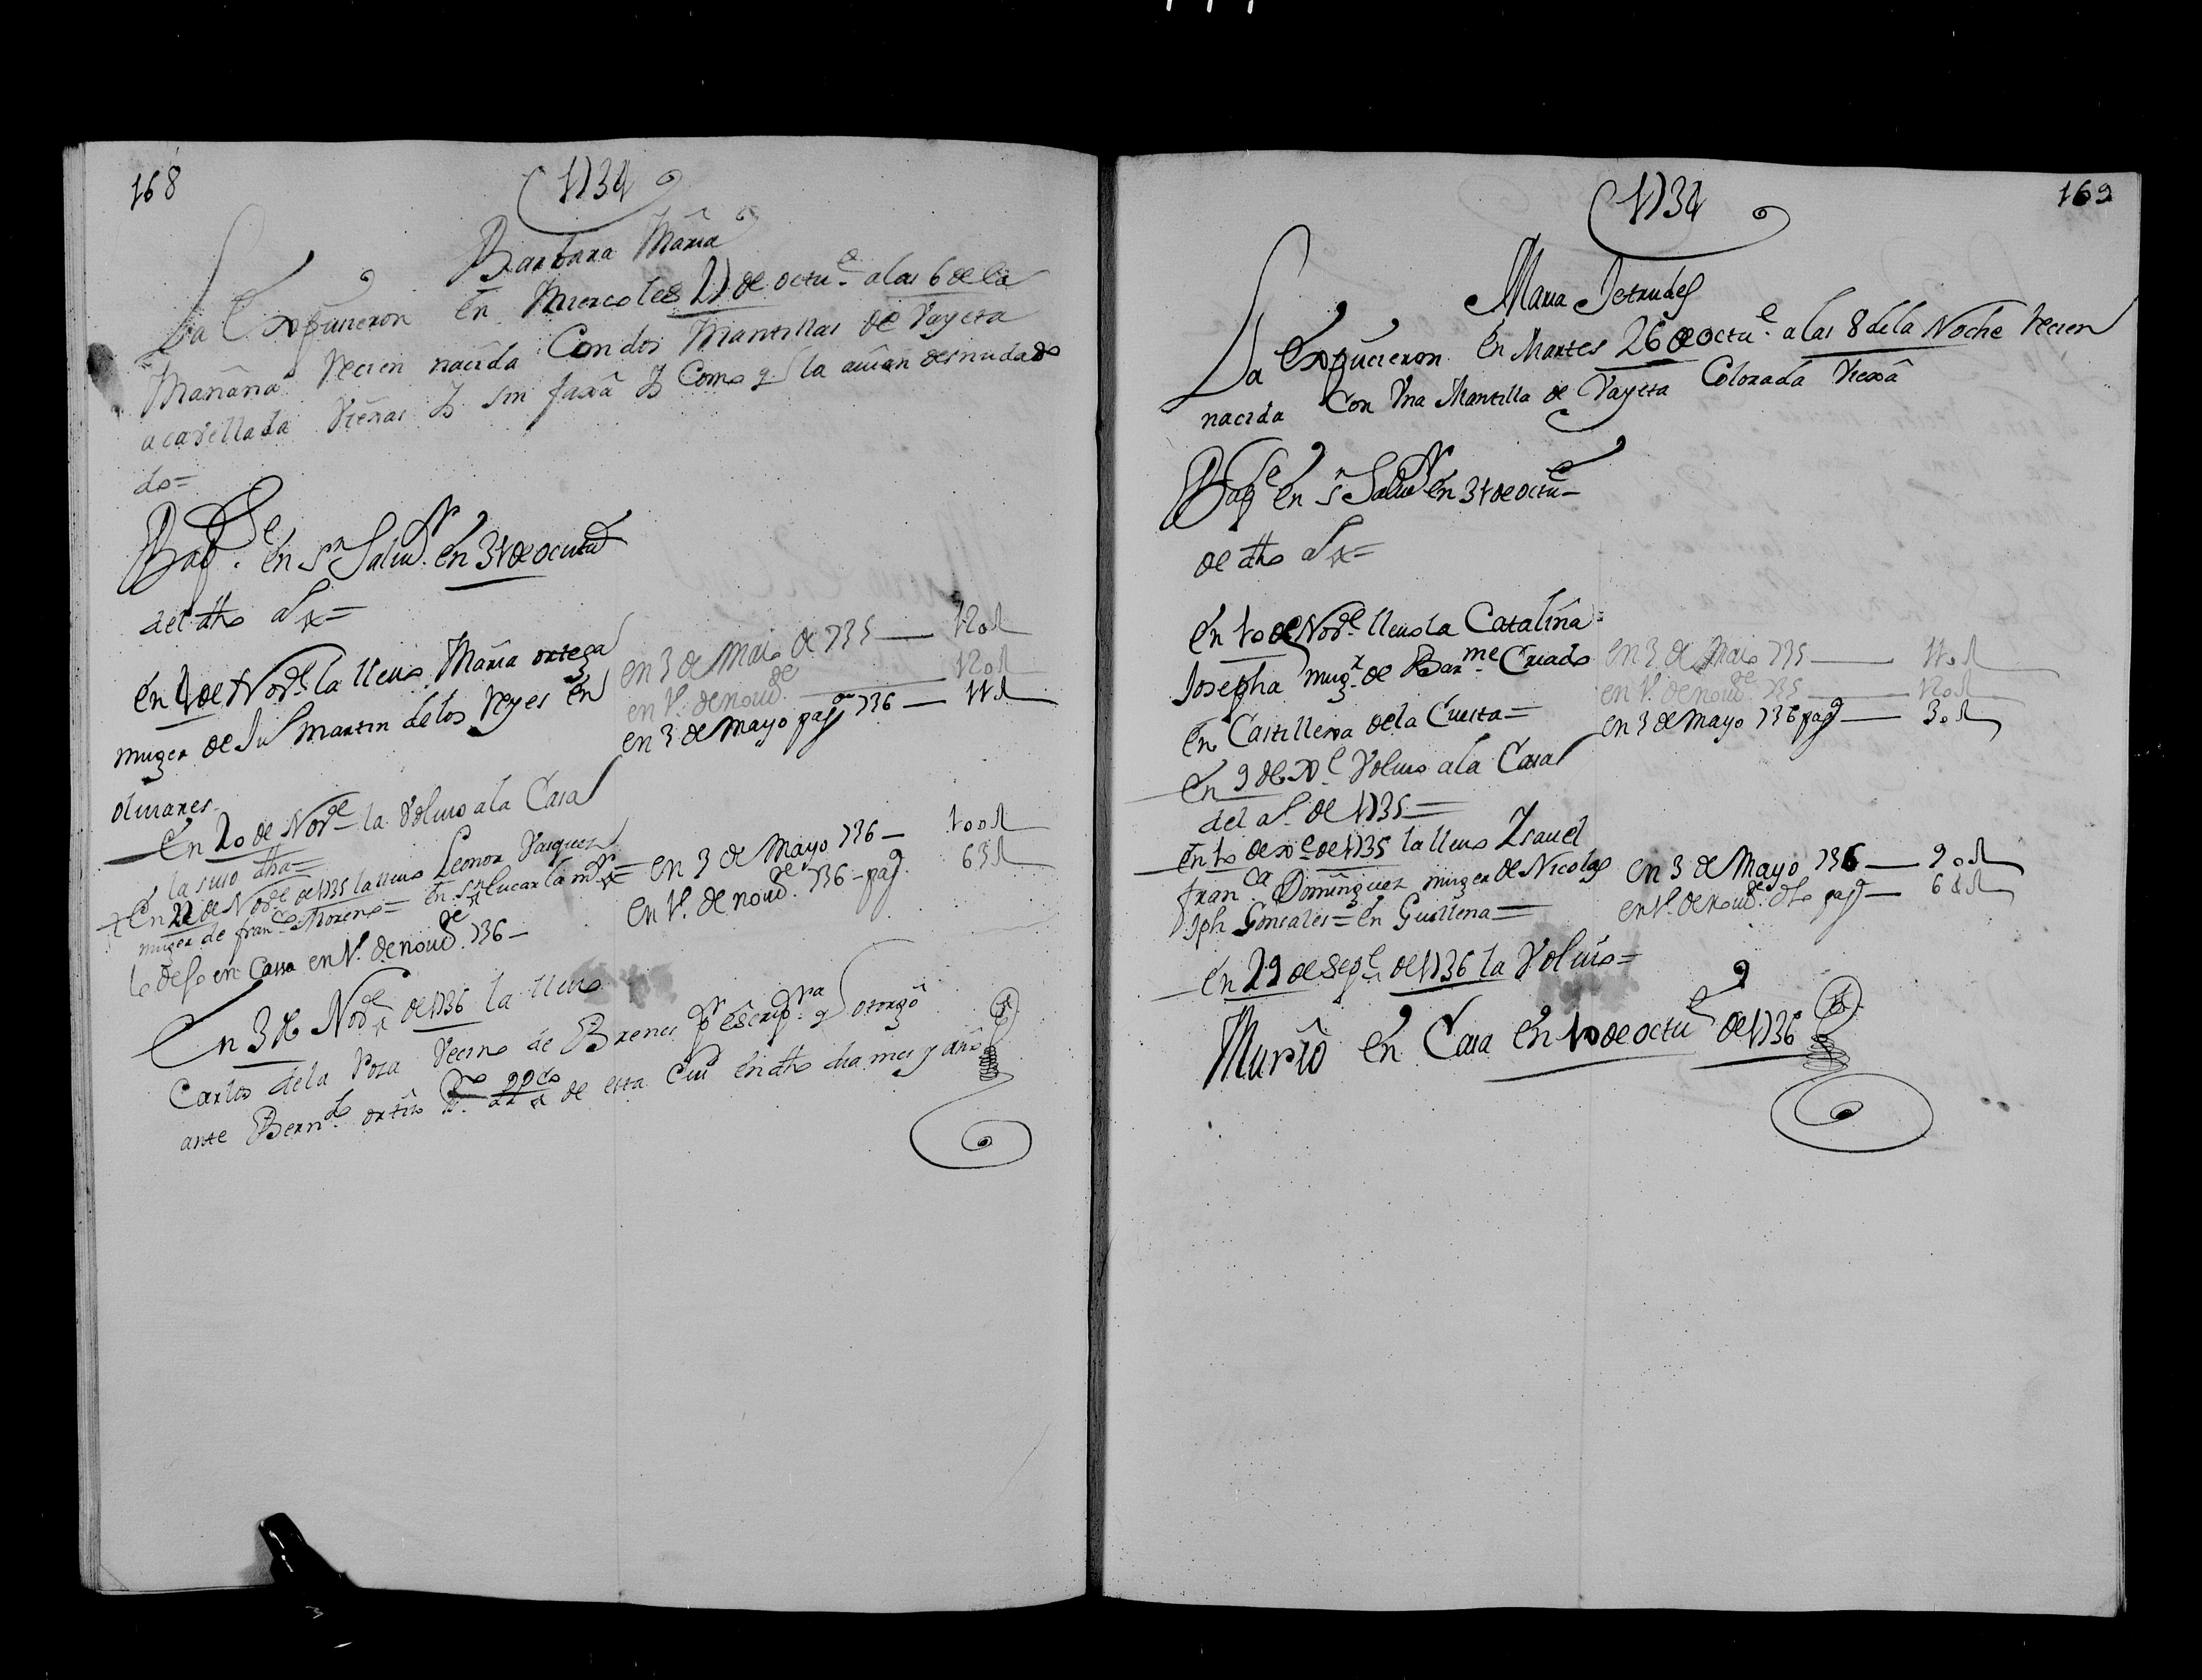 168
1734
Barbara Maria
La Expusieron en Miercoles 27 de octu.e a las 6 de la
Mañana Recien nacida Con dos Mantillas de Vayeta
acavellada Viejas y sin faxa y Como q la avian desnudado
do=
Bap.e en Sn Salvr en 31 de octue
del dho a=
en 1 de Nove la llevo Maria ortega
muger de Ju Martin de los Reyes en
olivares
en 3 de Maio de 735 — 120 R
en 1º de novie — 120 R
en 3 de Mayo pag 736 — 11 R
En 20 de Nove la Volvio a la Casa
la suso dha=
En 22 de Nove de 1735 la llevo Leonor Vasquez
muger de franco Moreno= en Sn Lucar la mr=
en 3 de Mayo 736 — 100 R
en 1º de novie 736 – pag 63 R
la deso en Cassa en 1º de novie 736 –
En 3 de Nove de 1736 la llevo
Carlos de la Rosa Vecino de Brenes pr escripra q otorgô
ante Berndo ortiz de esta Ciud en dho dia mes y año
169
1734
Maria Jetrudes
La Expucieron en Martes 26 de octue a las 8 de la Noche Recien
nacida Con Vna Mantilla de Vayeta Colorada Viexa
Bape en Sn Salvr en 31 de octue
de dho a=
en 10 de Nove llevo la Catalina
Josepha mugr de Barme Criado
en Castillexa de la Cuesta=
en 3 de Maio 735 — 110 R
en 1º de novie 735 — 120 R
en 3 de Mayo 736 pag — 30 R
en 9 de Xe Volvio a la Casa
del a de 1735=
en 10 de Xe de 1735 la llevo Ysavel
franca Dominguez muger de Nicolas
Jph Gonsales= en Guillena=
en 3 de Mayo 736 — 90 R
en 1º de novie dho pag — 68 R
en 29 de Sepe de 1736 la Volvio=
Murió en Casa en 10 de octue de 1736